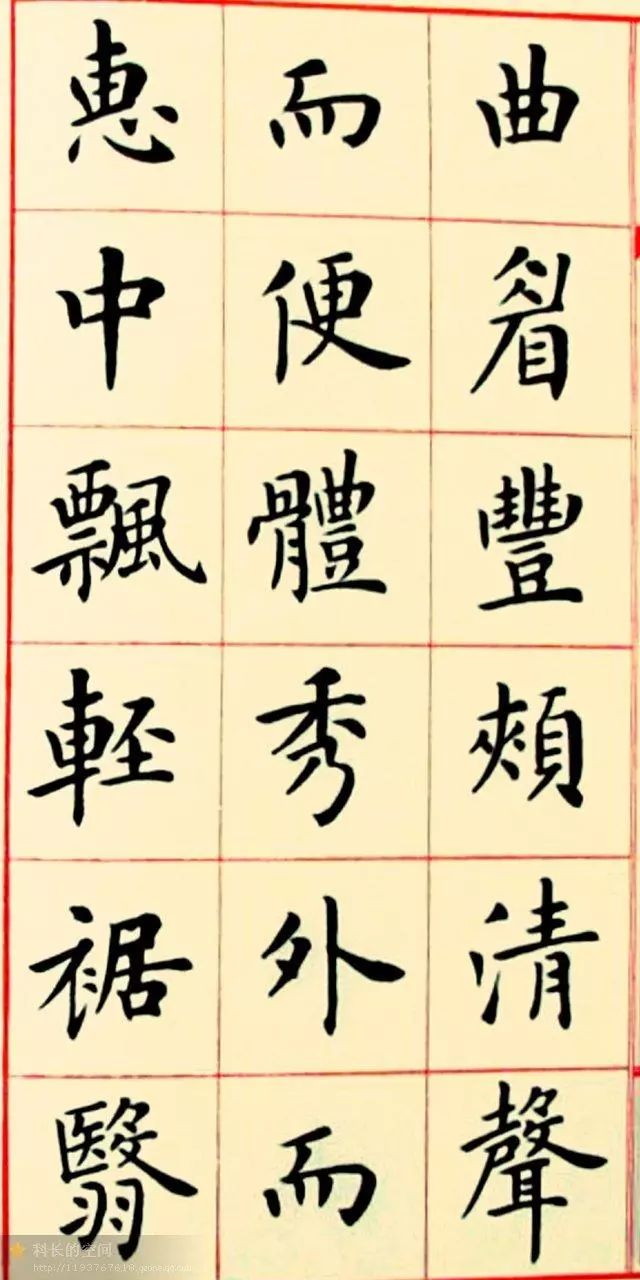 曲睂豐頰清聲
而便體秀外而
惠中飄輕裾翳
科长的空间
http://1193767618.qzone.qq.com